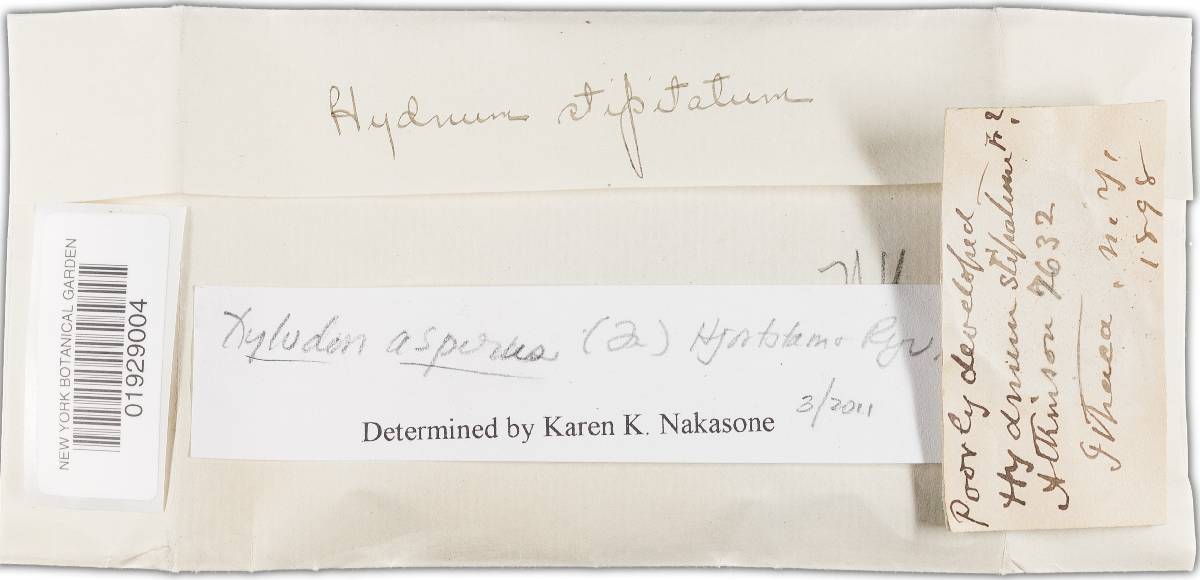 Hydnum stipitatum
NEW YORK BOTANICAL GARDEN
01929004
Xylodon asperus (Fr) Hjortstam & Ryv.
3/2011
Determined by Karen K. Nakasone
Poorly developed
Hydnum stipatum Fr?
Atkinson 7632
Ithaca. N. Y.
1898